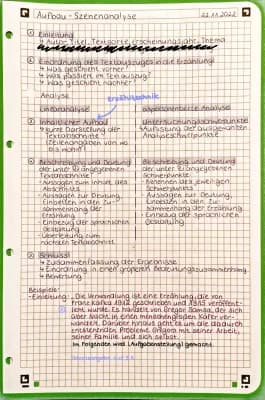 Aufbau - Szenenanalyse
22.11.2022
① Einleitung
↳ Autor, Titel, Textsorte, Erscheinungsjahr, Thema
② Einordnung des Textauszuges in die Erzählung
↳ Was geschieht vorher?
↳ Was passiert im Textauszug?
↳ Was geschieht nachher?
Analyse
Erzähltechnik
Linearanalyse
aspektorientierte Analyse
③ Inhaltlicher Aufbau
↳ kurze Darstellung der
Textabschnitte
(Zeilenangaben von wo
bis wohin)
Untersuchungsschwerpunkte
↳ Auflistung der ausgewählten
Analyseschwerpunkte
④ Beschreibung und Deutung
der unter ③ angegebenen
Textabschnitte
- Aussagen zum Inhalt des
Abschnitts
- Aussagen zur Deutung,
Einbetten in den Zu-
sammenhang der
Erzählung
- Einbezug der sprachlichen
Gestaltung
- Überleitung zum
nächsten Textabschnitt
Beschreibung und Deutung
der unter ③ angegebenen
Schwerpunkte
- Benennen des jeweiligen
Schwerpunktes
- Aussagen zur Deutung,
Einbetten in den Zu-
sammenhang der
Erzählung
- Einbezug der sprachlichen
Gestaltung
⑤ Schluss
↳ Zusammenfassung der Ergebnisse
↳ Einordnung in einen größeren Bedeutungszusammenhang
↳ Bewertung
Beispiele:
- Einleitung: „Die Verwandlung ist eine Erzählung, die von
Franz Kafka 1912 geschrieben und 1915 veröffent-
licht wurde. Es handelt von Gregor Samsa, der sich
über Nacht in einen menschengroßen Käfer ver-
wandelt. Darüber hinaus geht es um die dadurch
entstehenden Probleme Gregors mit seiner Arbeit,
seiner Familie und sich selbst.
Im folgenden wird (Aufgabenstellung) gemacht.